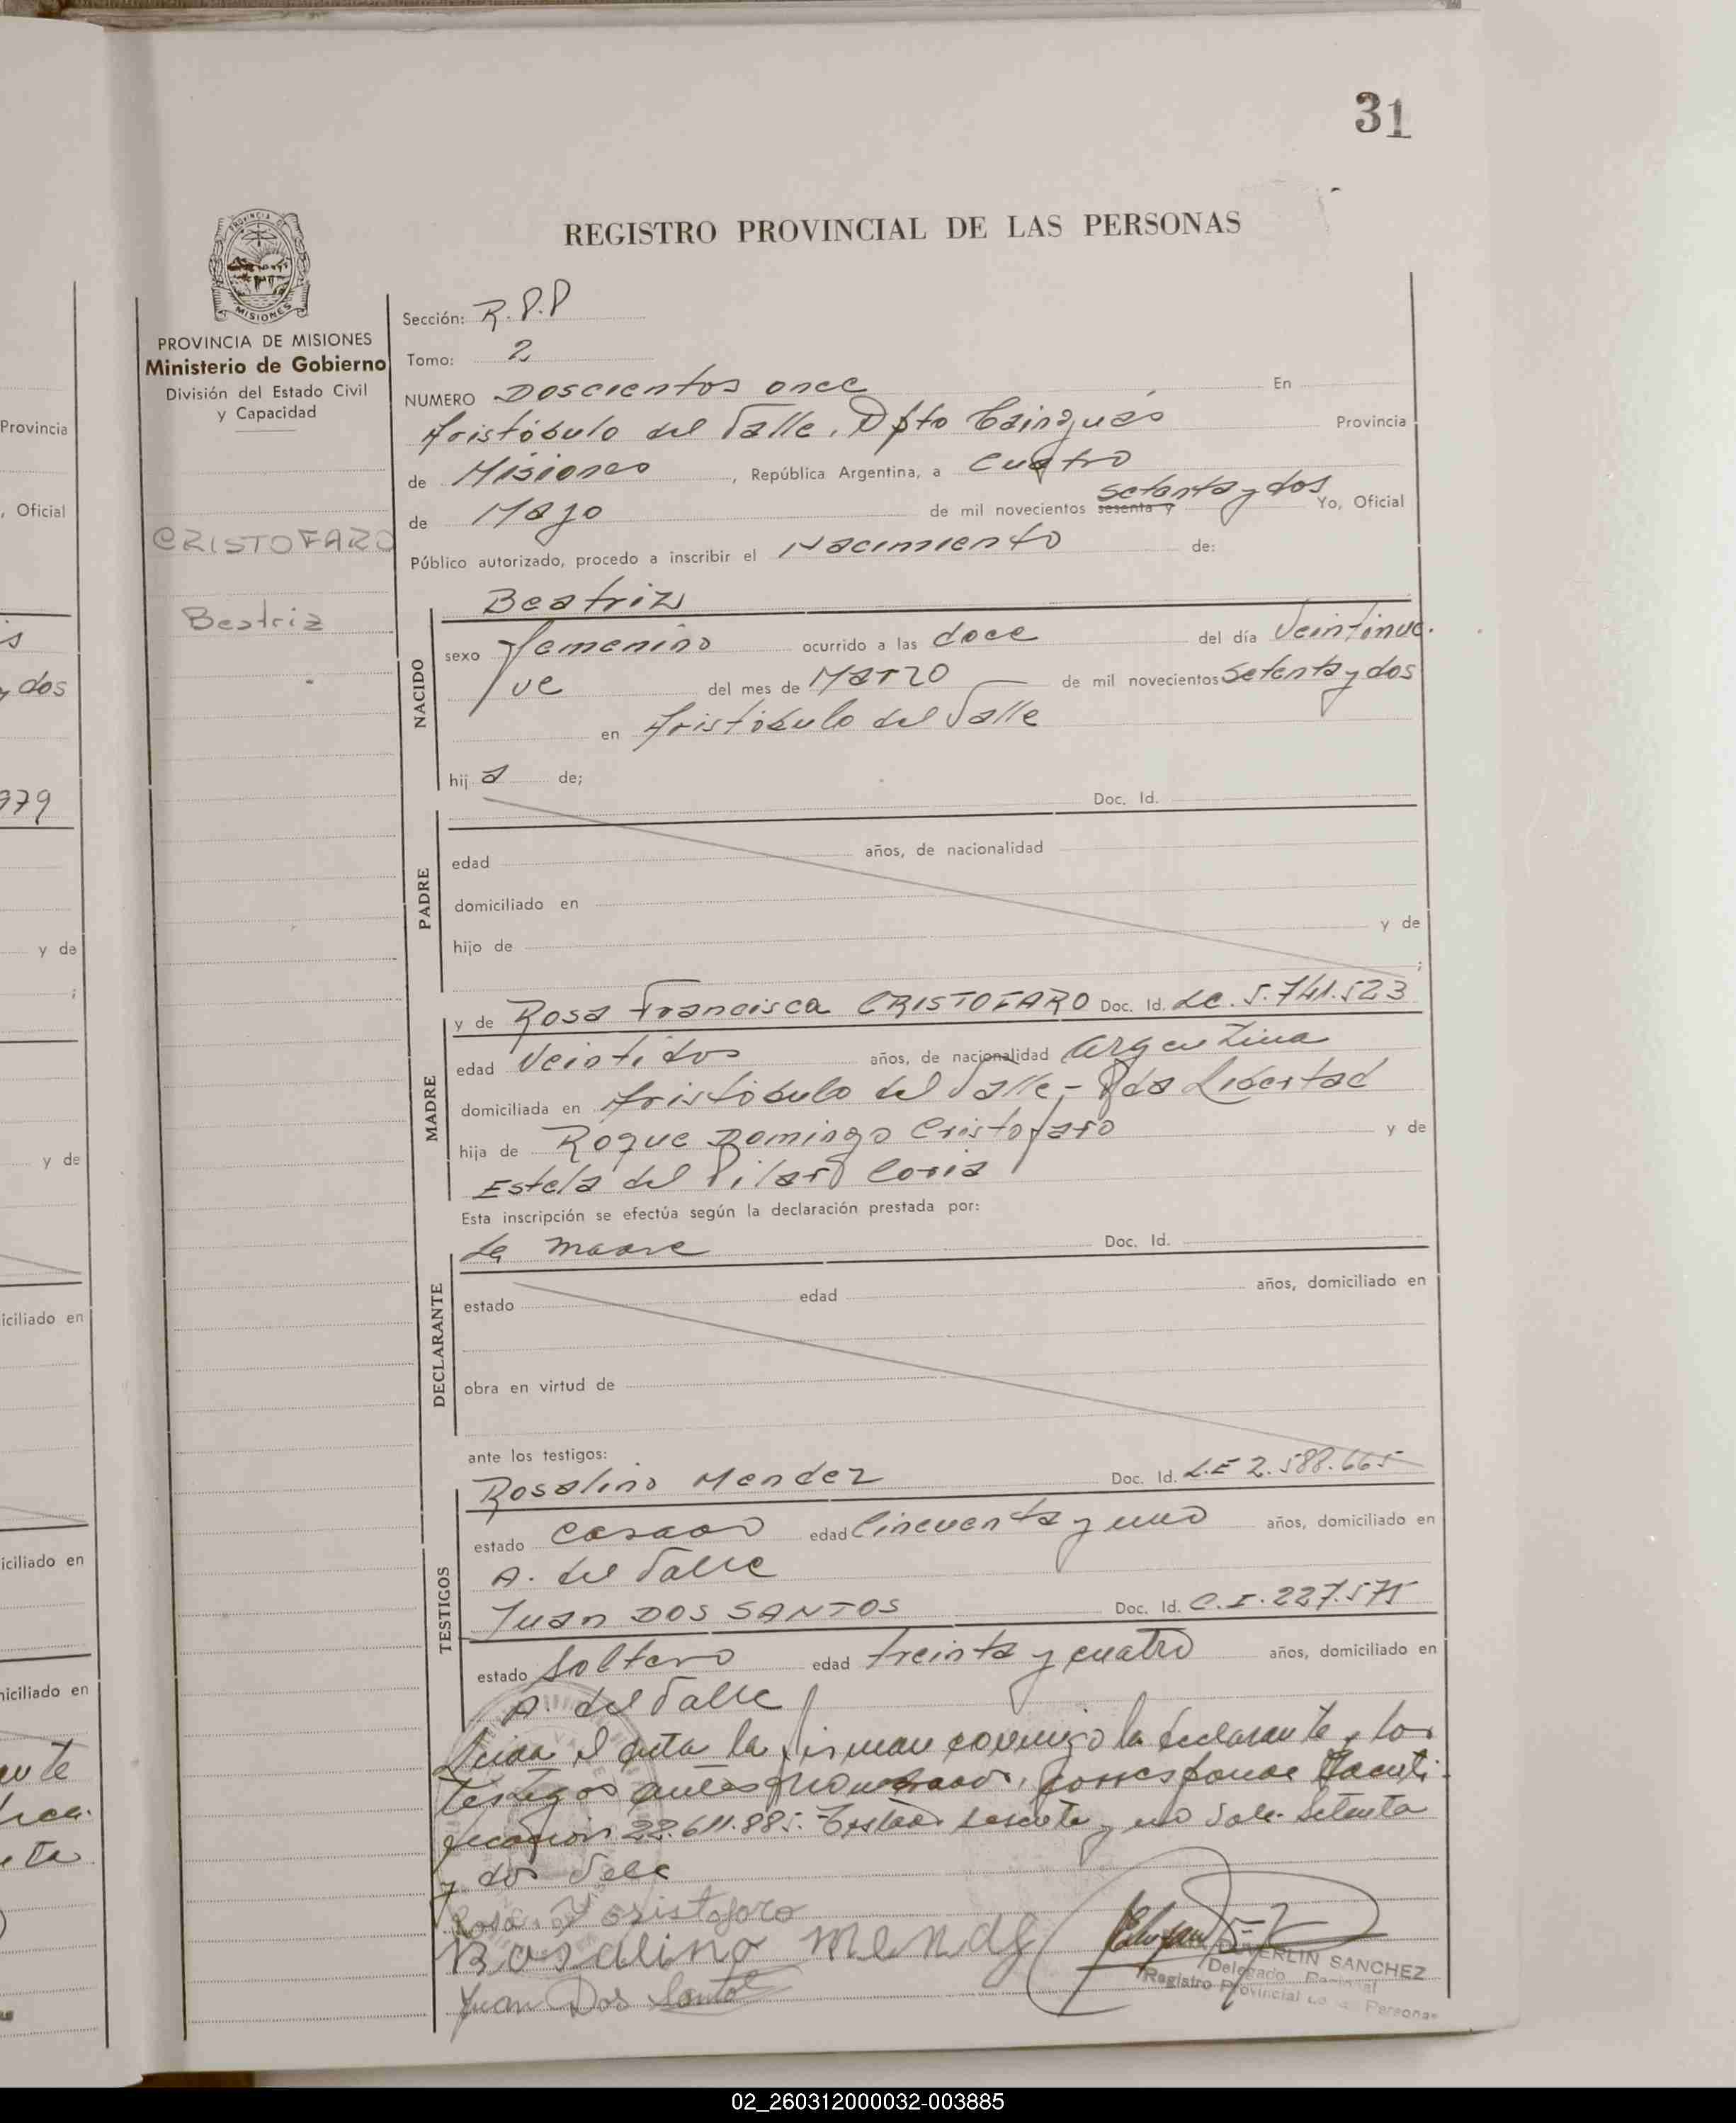 31
REGISTRO PROVINCIAL DE LAS PERSONAS
PROVINCIA DE
MISIONES
PROVINCIA DE MISIONES
Ministerio de Gobierno
División del Estado Civil
y Capacidad
CRISTOFARO
Beatriz
Sección: R.P.P
Tomo: 2
NUMERO Doscientos once En
Aristóbulo del Valle, Dpto Cainguás Provincia
de Misiones, República Argentina, a cuatro
de Mayo de mil novecientos sesenta y setenta y dos Yo, Oficial
Público autorizado, procedo a inscribir el Nacimiento de:
Beatriz
NACIDO
sexo femenino ocurrido a las doce del día veintinue-
ve del mes de Marzo de mil novecientos setenta y dos
en Aristóbulo del Valle
hija de;
Doc. Id.
PADRE
edad años, de nacionalidad
domiciliado en
hijo de y de
;
MADRE
y de Rosa Francisca CRISTOFARO Doc. Id. LC. 5.741.523
edad Veintidos años, de nacionalidad argentina
domiciliada en Aristóbulo del Valle - Pda Libertad
hija de Roque Domingo Cristofaro y de
Estela del Pilar Coria
Esta inscripción se efectúa según la declaración prestada por:
La madre Doc. Id.
DECLARANTE
estado edad años, domiciliado en
obra en virtud de
ante los testigos:
Rosalino Mendez Doc. Id. L.E 2.588.665
TESTIGOS
estado casado edad cincuenta y uno años, domiciliado en
A. del Valle
Juan DOS SANTOS Doc. Id. C.I. 227.575
estado soltero edad treinta y cuatro años, domiciliado en
A. del Valle
Leida el acta la firman conmigo la declarante y los
testigos antes nombrados, corresponde
22.611.885. Testado sesenta y no vale. Setenta
y dos Vale
Rosa F Cristofaro
Rosalino Mendez
Juan Dos Santos
SANCHEZ
Delegado
Registro Provincial de las Personas
Provincia
, Oficial
y dos
979
y de
;
y de
iciliado en
iciliado en
niciliado en
02_260312000032-003885